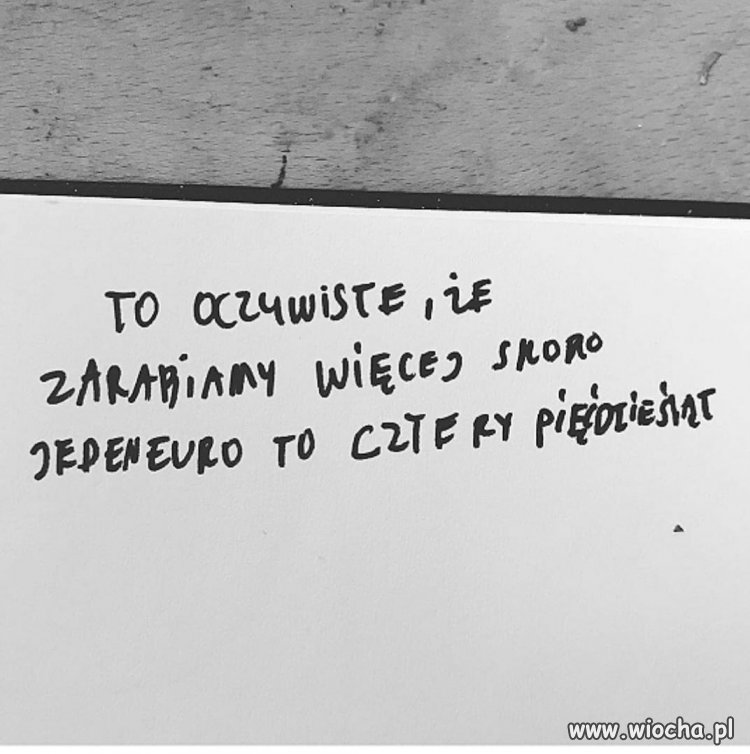 TO OCZYWISTE, ŻE
ZARABIAMY WIĘCEJ SKORO
JEDEN EURO TO CZTERY PIĘĆDZIESIĄT
www.wiocha.pl